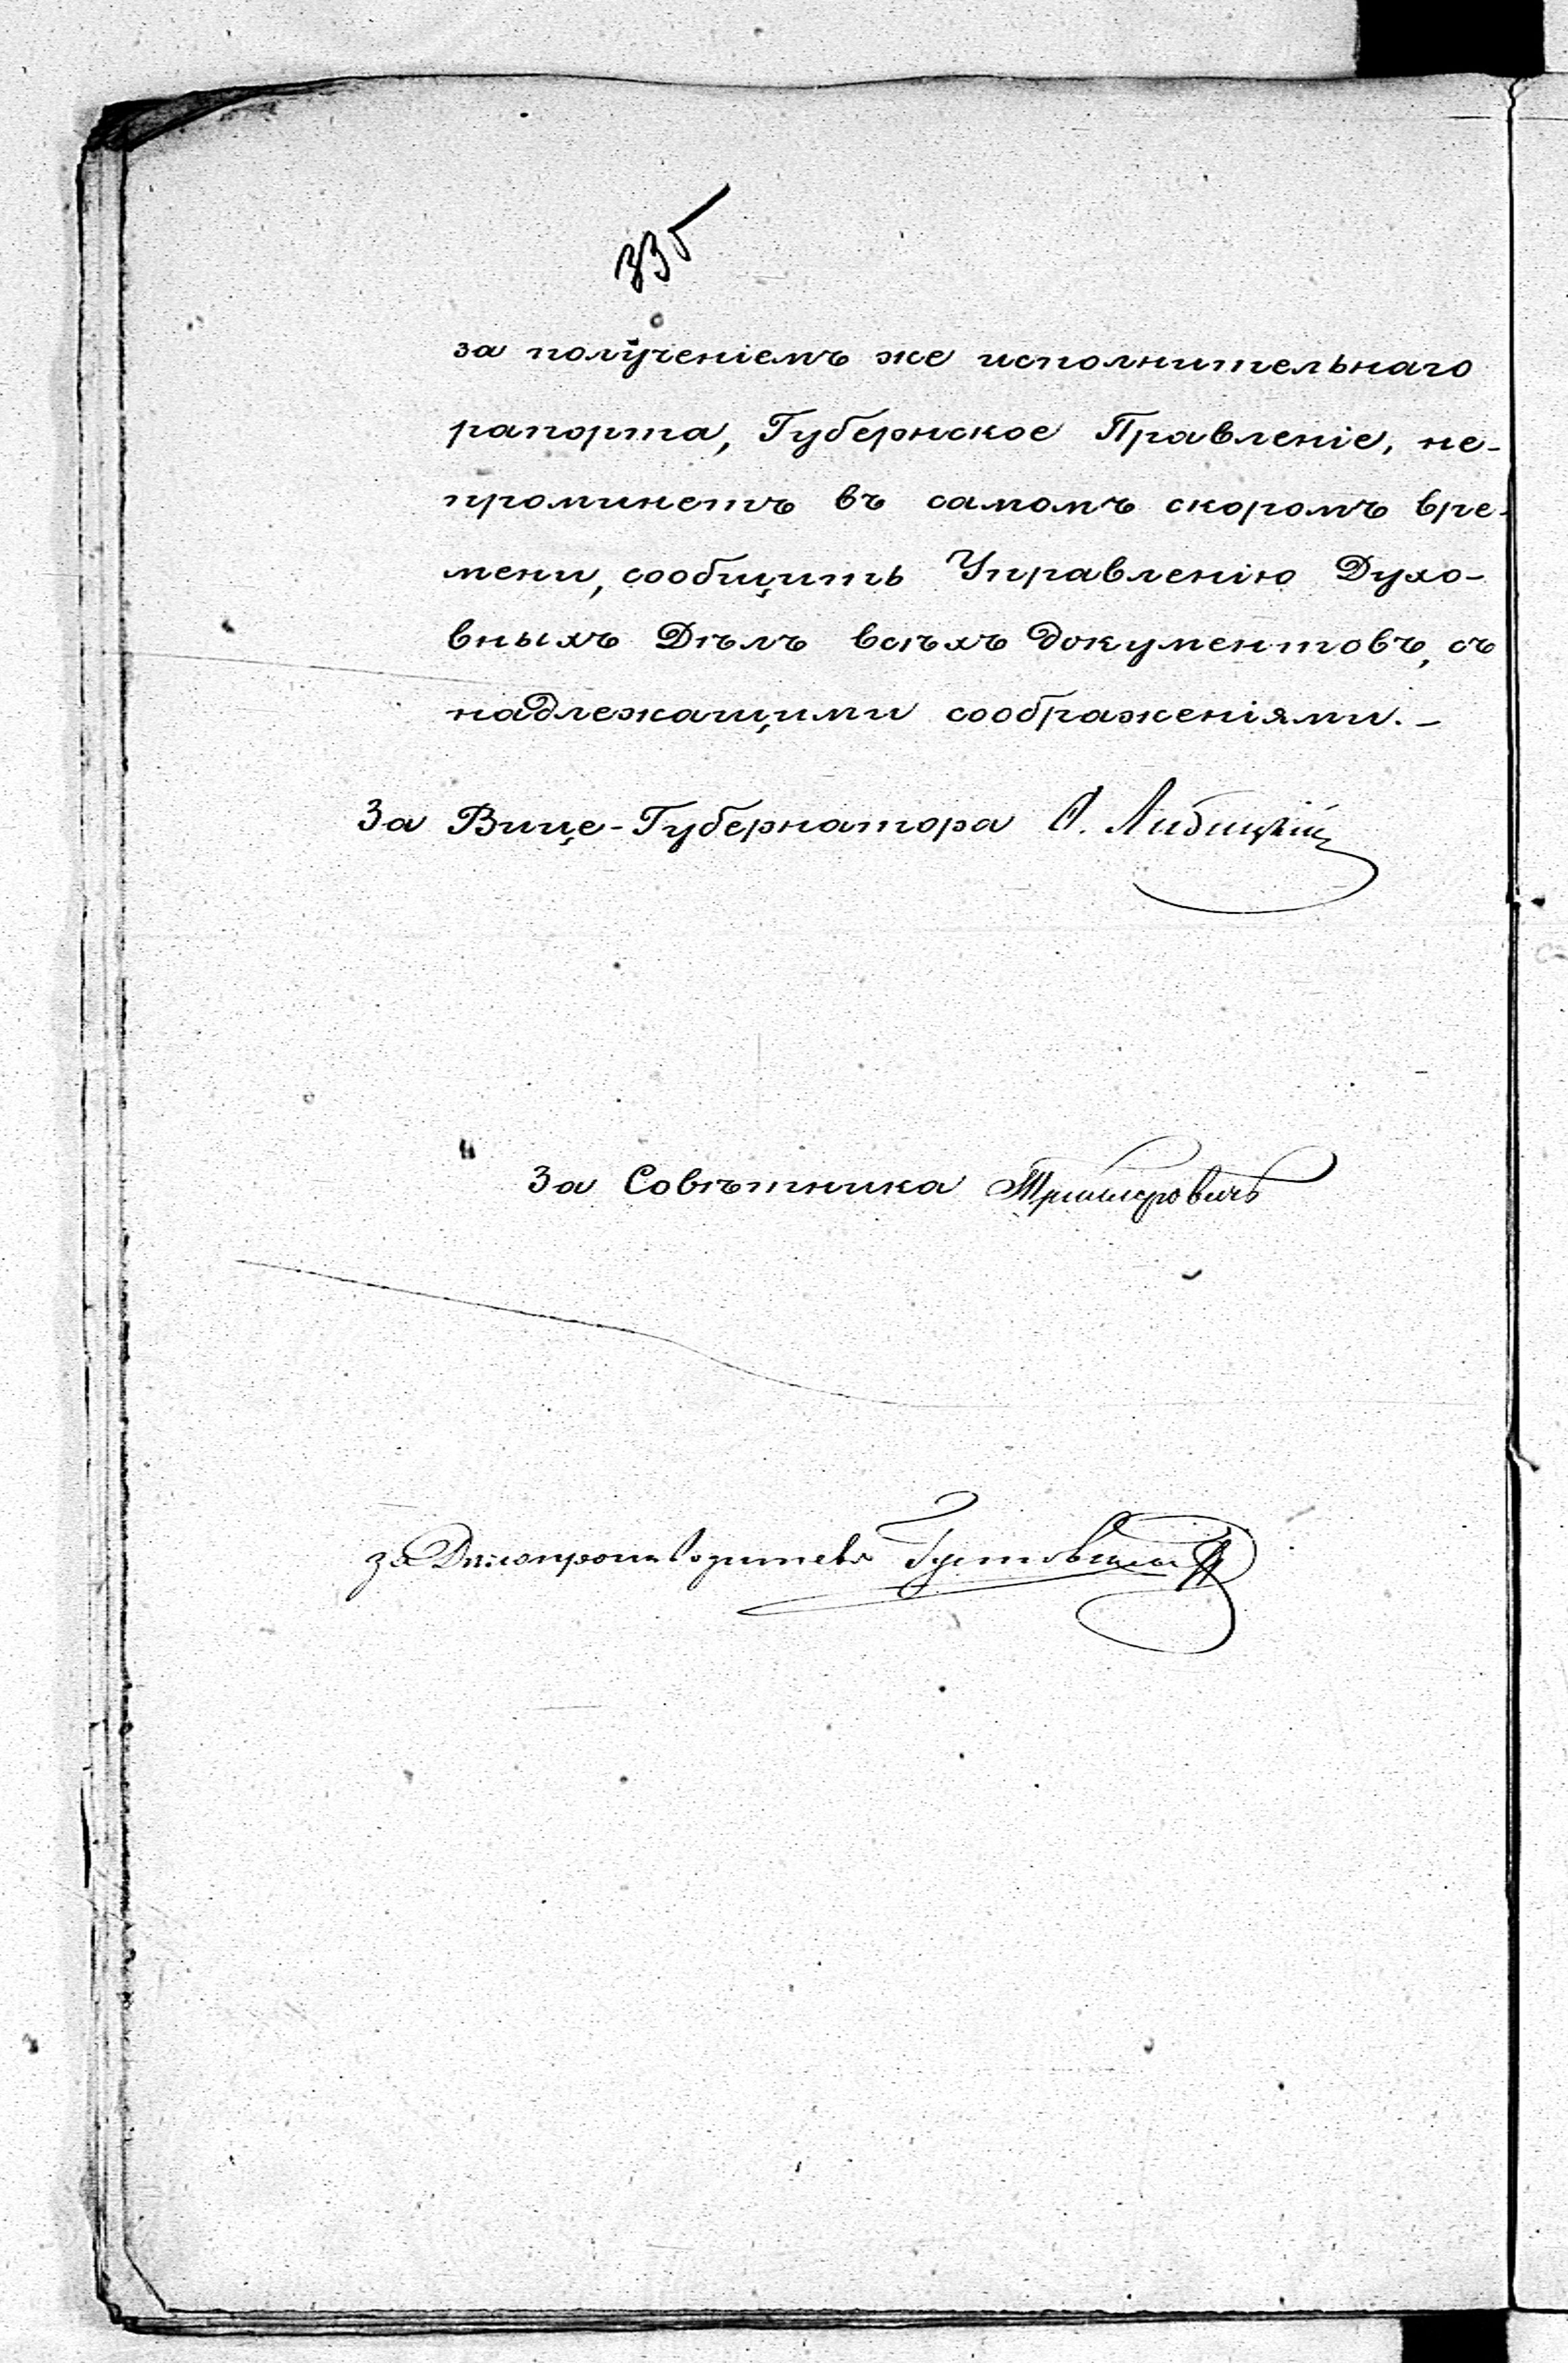 335
за полученіемъ же исполнительнаго
рапорта, Губернское Правленіе, не-
проминетъ въ самомъ скоромъ вре-
мени, сообщить Управленію Духо-
вныхъ Дѣлъ всѣхъ документовъ, съ
надлежащими соображеніями. –
За Вице-Губернатора А. Либицкій
За Совѣтника
за Дѣлопроизводителя